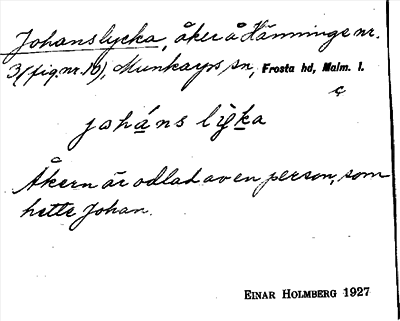 Johanslycka, åker å Hänninge nr.
3 (fig. nr. 16), Munkarps sn, Frosta hd, Malm. l.
joháns lỳka
Åkern är odlad av en person, som
hette Johan.
EINAR HOLMBERG 1927